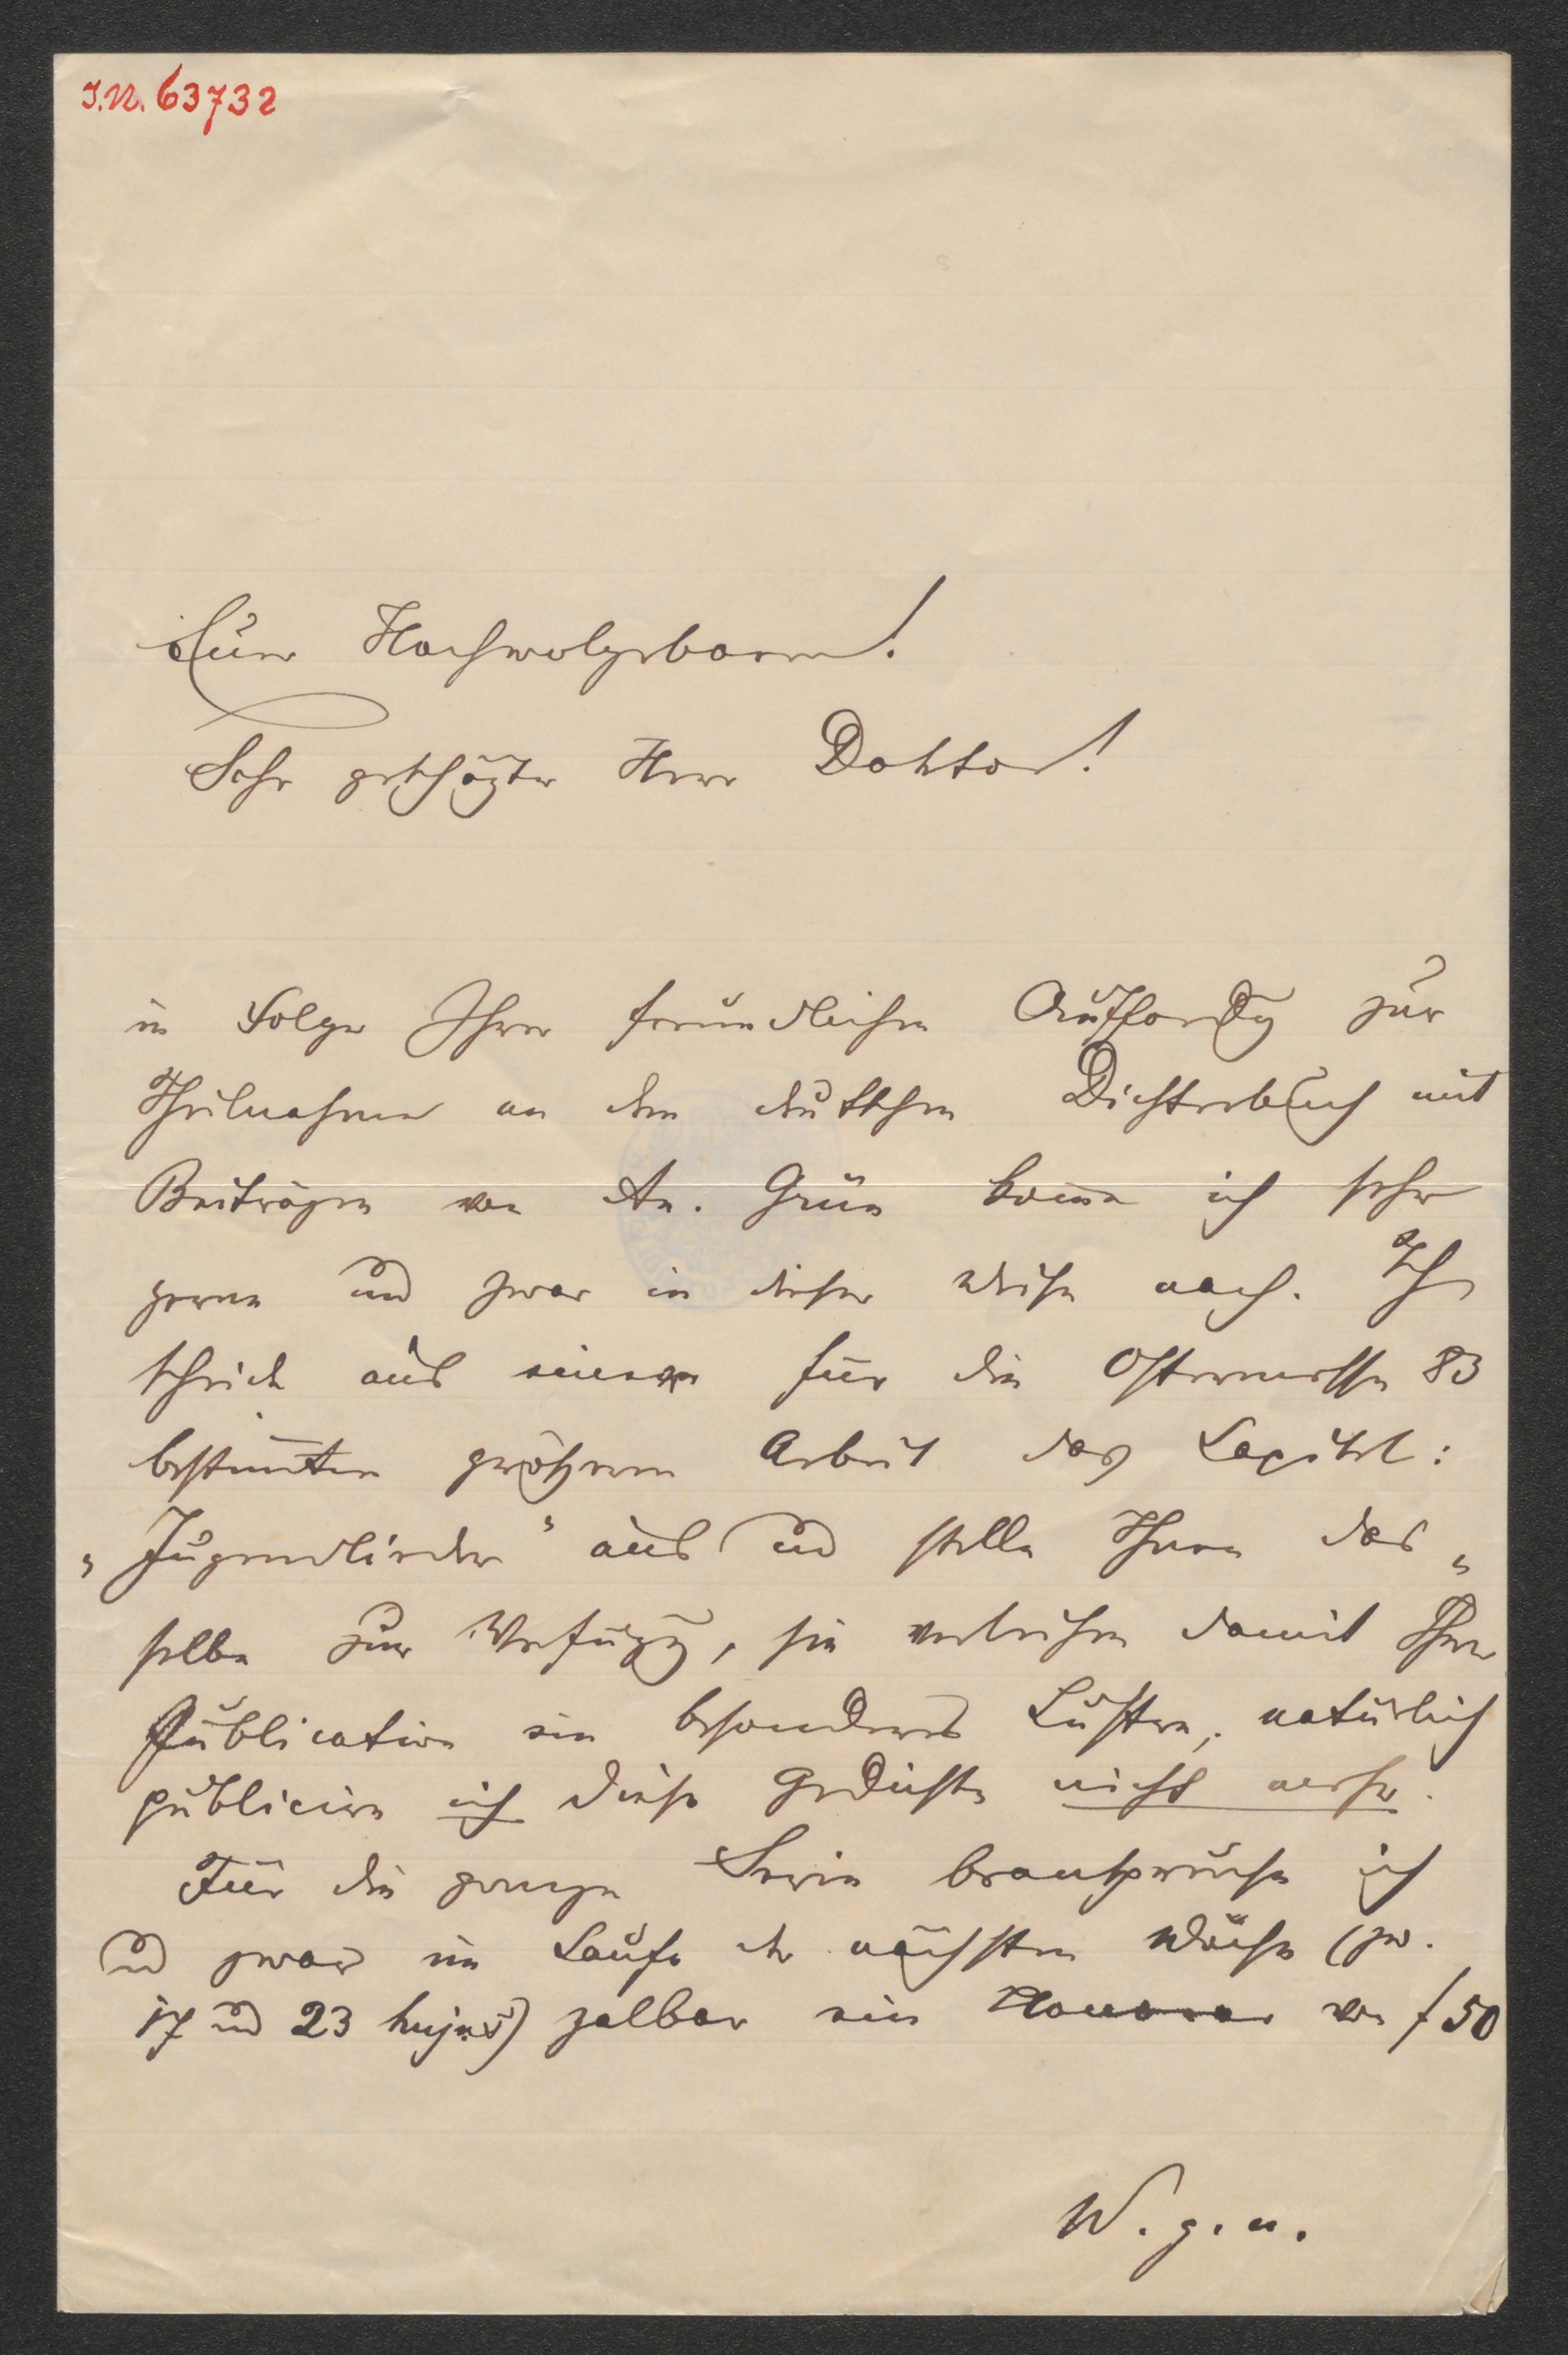 I.N. 63732
Euer Hochwolgeboren!
Sehr geschäzter Herr Doktor!
in Folge Ihrer freundlichen Auffordg zur
Theilnahme an dem deutschen Dichterbuch mit
Beiträgen von An. Grün kome ich sehr
gerne und zwar in dieser Weise nach. Ich
scheide aus einer für die Ostermesse 83
bestimten größeren Arbeit das Capitel:
„Jugendlieder" aus und stelle Ihnen das„
selbe zur Verfügg, sie verleihen damit Ihrer
Publication ein besonderes Lustre, natürlich
publicire ich diese Gedichte nicht mehr.
Für die ganze Serie beanspruche ich
und zwar im Laufe der nächsten Woche (zw.
17 und 23 hujus) zalbar ein Honorar von f 50
W. g. u.